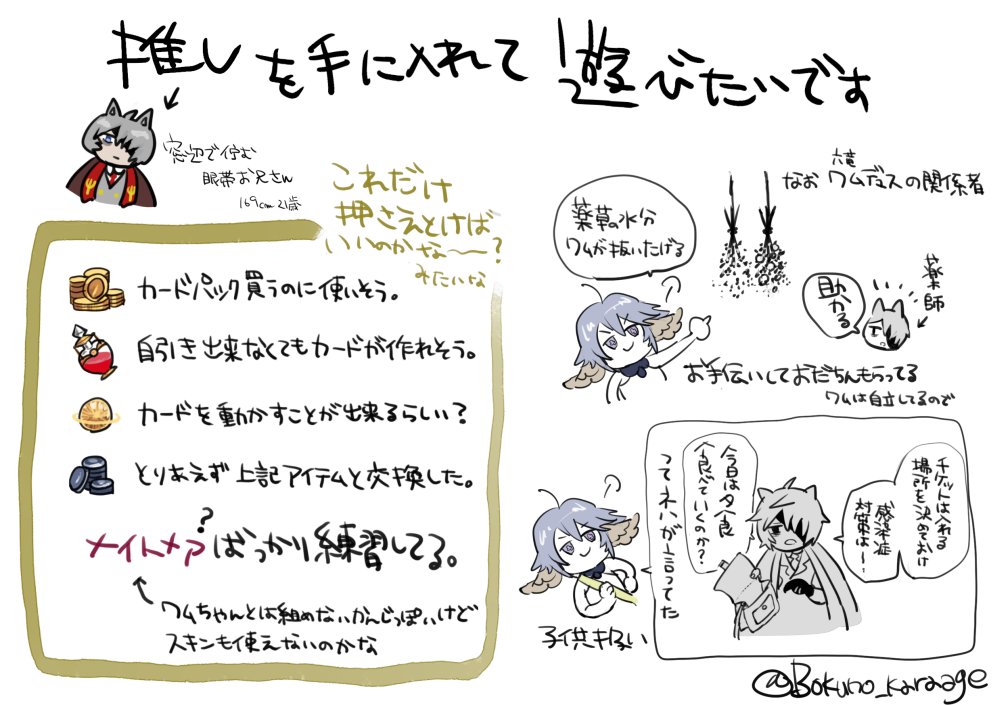 推しを手に入れて遊びたいです
窓辺で佇む
眼帯お兄さん
169cm 21歳
これだけ
押さえとけば
いいのかな〜?
みたいな
カードパック買うのに使いそう。
自引き出来なくてもカードが作れそう。
カードを動かすことが出来るらしい?
とりあえず上記アイテムと交換した。
?
ナイトメアばっかり練習してる。
ワムちゃんとは組めないかんじっぽいけど
スキンも使えないのかな
なおワムデュスの関係者
薬草の水分
ワムが抜いたげる
薬師
助かる
お手伝いしておだちんもらってる
ワムは自立してるので
チケットは入れる
場所を決めておけ
感染症
対策は〜
今日は夕食
食べていくのか?
ってネハが言ってた
子供扱い
@Bokuno_karaage